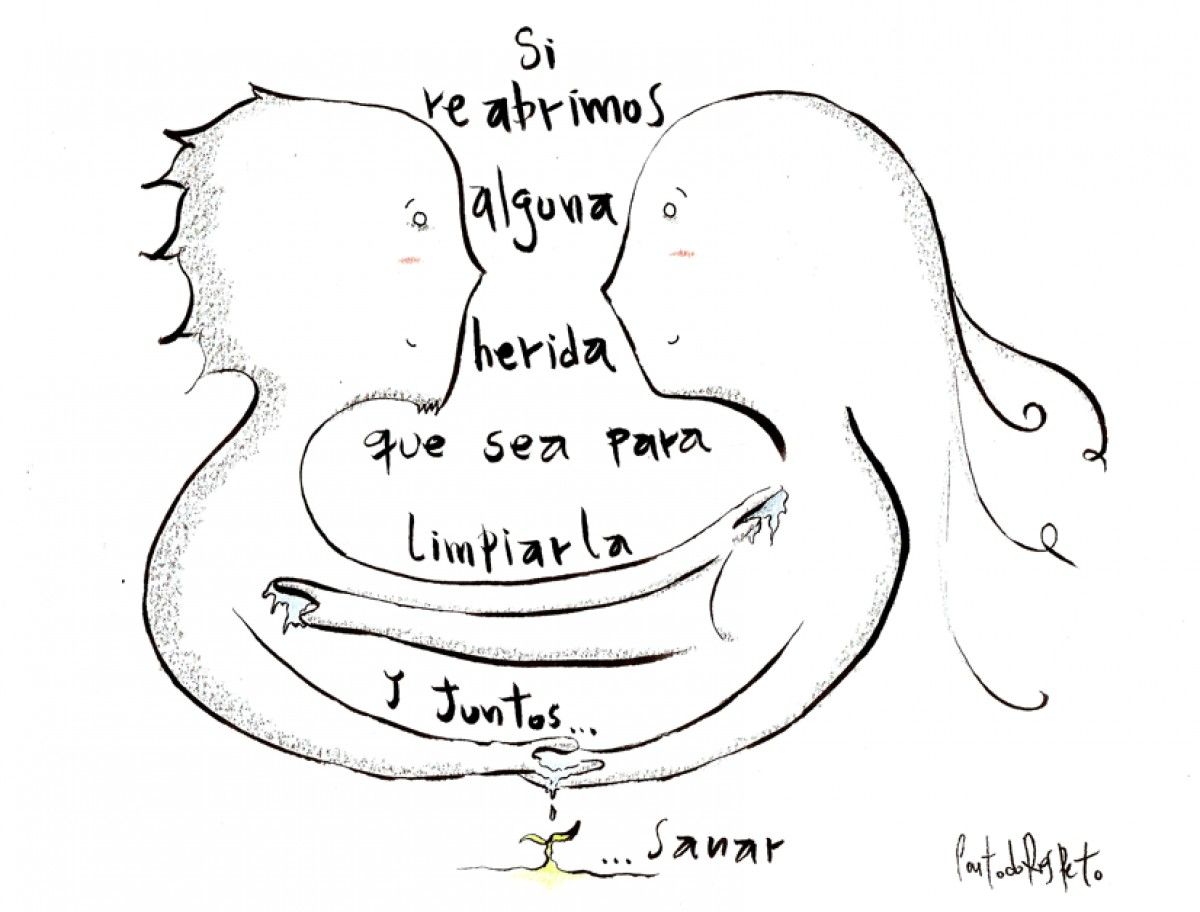 Si
reabrimos
alguna
herida
que sea para
Limpiarla
Y Juntos...
...Sanar
ContodoResPeto